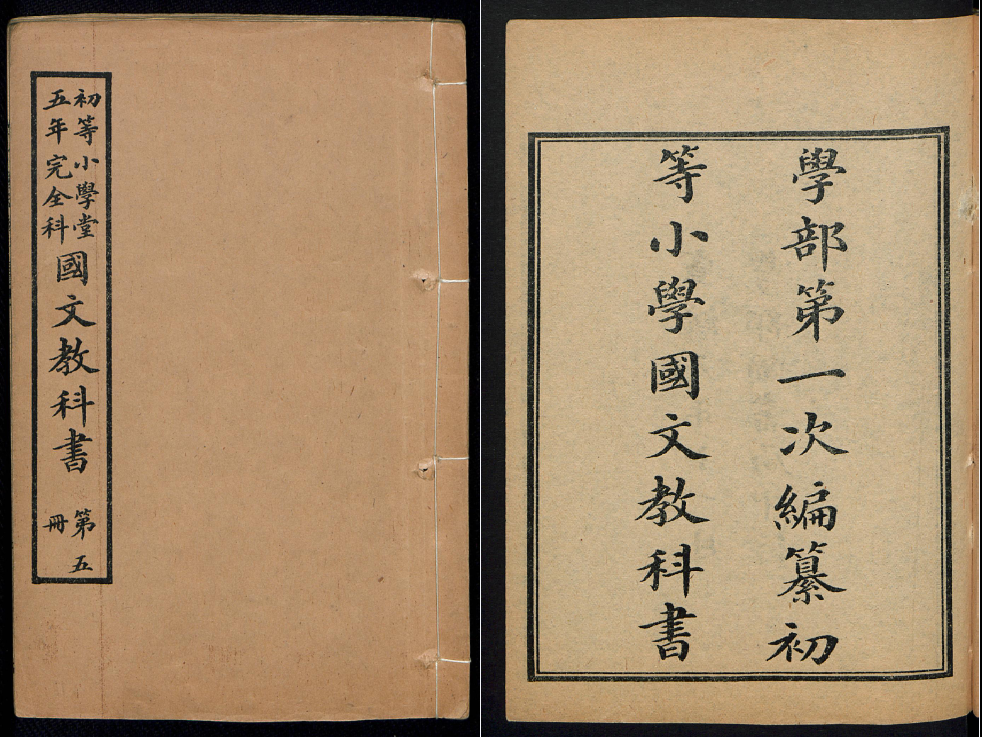 初等小學堂
五年完全科
國文教科書
第五
冊
學部第一次編纂初
等小學國文教科書